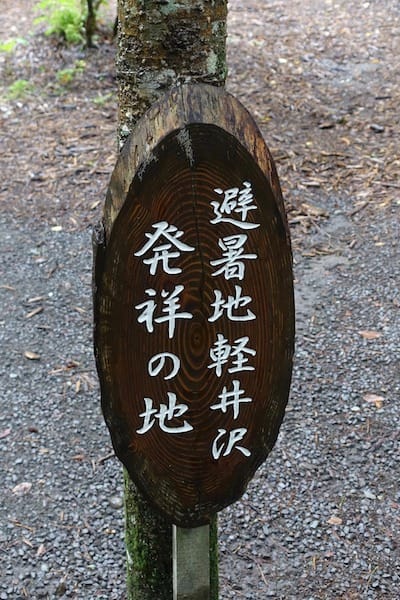 避暑地軽井沢
発祥の地